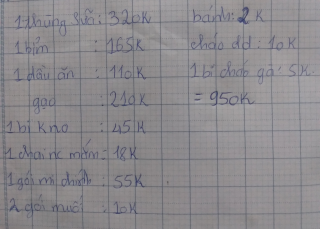 1 thùng sữa: 320K
1 bỉm : 165K
1 dầu ăn : 110K
gạo : 210K
1 bì kno : 45K
1 chai nc mắm: 18K
1 gói mì chính: 55K
2 gói muối : 10K
bánh: 2K
cháo dd: 10K
1 bì cháo gà: 5K
= 950K